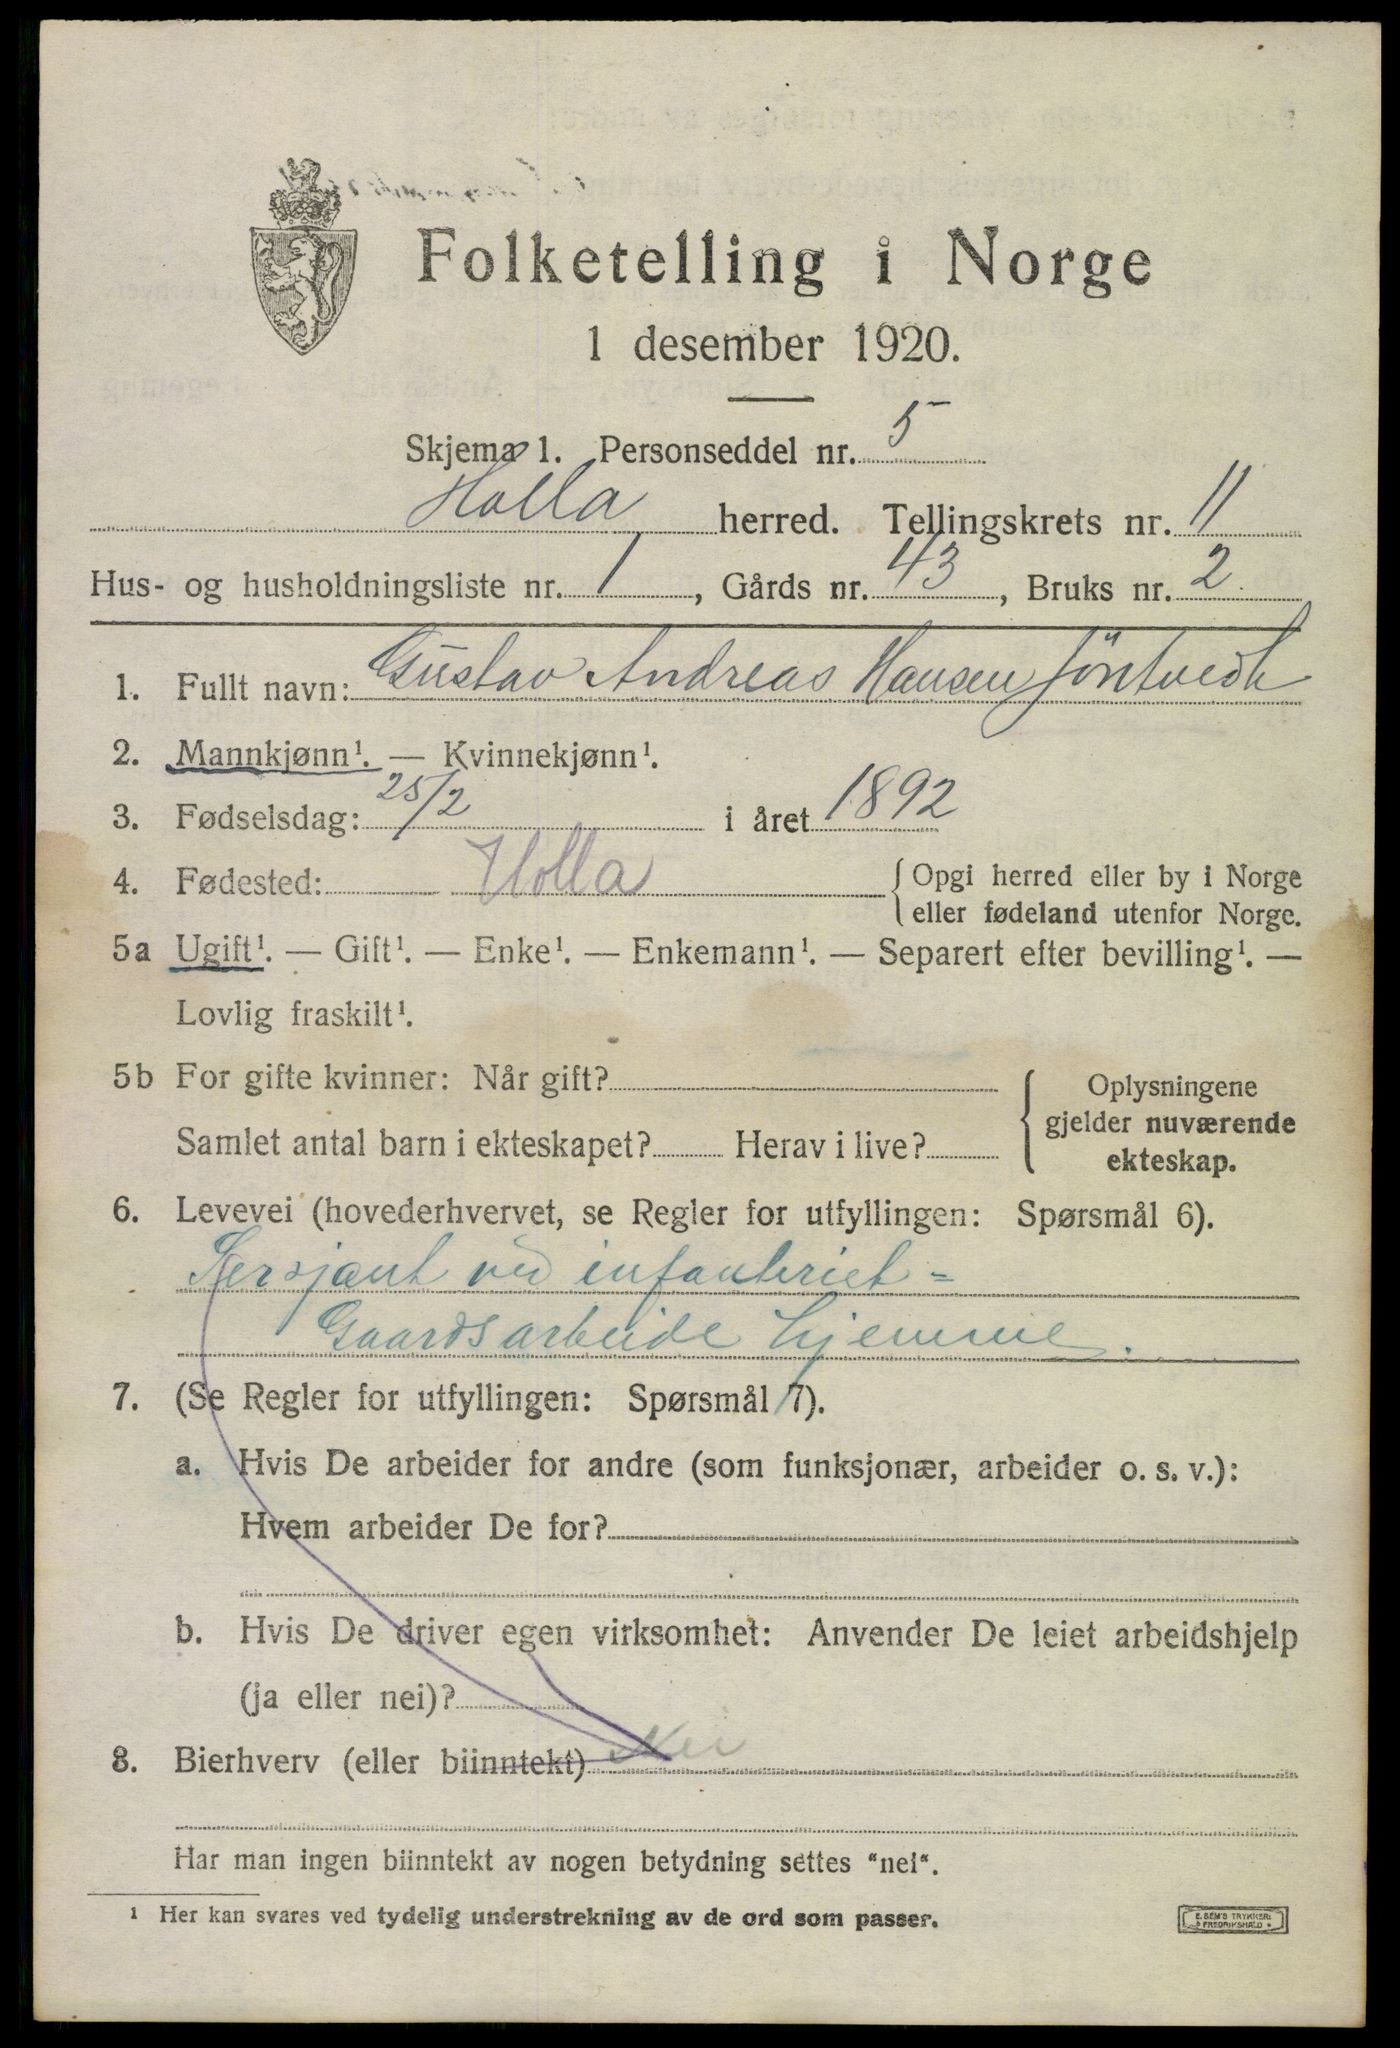 Folketelling i Norge
1 desember 1920.
Skjema 1. Personseddel nr. 5
Holla herred. Tellingskrets nr. 11
Hus- og husholdningsliste nr. 1, Gårds nr. 43, Bruks nr. 2
1. Fullt navn: Gustav Andreas Hansen Jöntvedt
2. Mannkjønn¹. — Kvinnekjønn¹.
3. Fødselsdag: 25/2 i året 1892
4. Fødested: Holla { Opgi herred eller by i Norge
eller fødeland utenfor Norge.
5a Ugift¹. — Gift¹. — Enke¹. — Enkemann¹. — Separert efter bevilling¹. —
Lovlig fraskilt¹.
5b For gifte kvinner: Når gift? { Oplysningene
gjelder nuværende
Samlet antal barn i ekteskapet? Herav i live?
ekteskap.
6. Levevei (hovederhvervet, se Regler for utfyllingen: Spørsmål 6).
Sersjant ved infanteriet =
Gaardsarbeide hjemme.
7. (Se Regler for utfyllingen: Spørsmål 7).
a. Hvis De arbeider for andre (som funksjonær, arbeider o. s. v.):
Hvem arbeider De for?
b. Hvis De driver egen virksomhet: Anvender De leiet arbeidshjelp
(ja eller nei)?
8. Bierhverv (eller biinntekt) Nei
Har man ingen biinntekt av nogen betydning settes "nei".
¹ Her kan svares ved tydelig understrekning av de ord som passer.
E. SEM'S TRYKKERI
FREDRIKSHALD